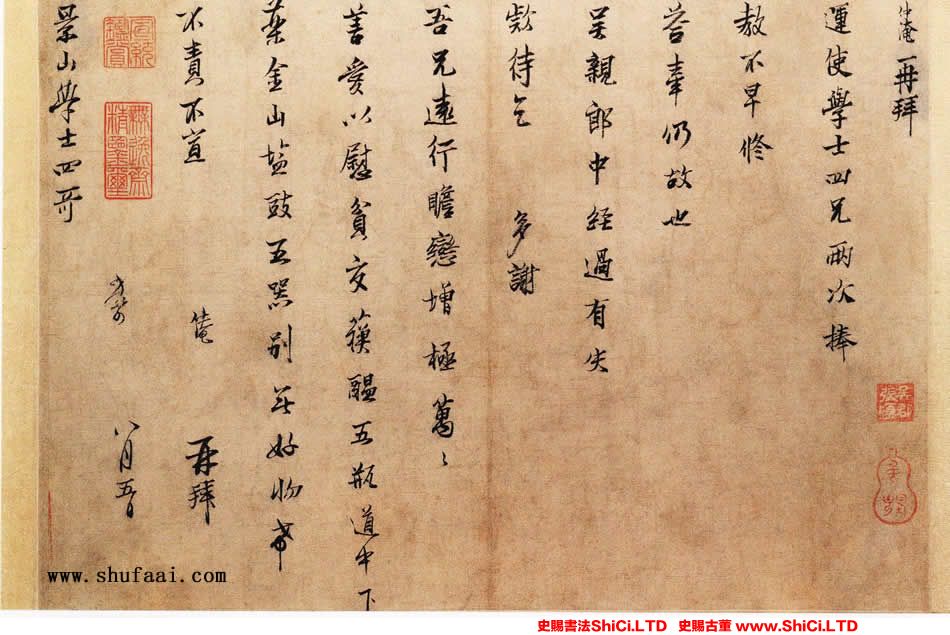 仲淹再拜
運使學士四兄兩次捧
教不早修
荅奉仍故也
吴親郎中經過有失
欵待乞 多謝
吾兄遠行瞻戀增極萬〻
善愛以慰貧交蘓醖五瓶道中下
藥金山塩豉五器别無好物希
不責不宣 仲淹 再拜
景山學士四哥 八月五日
www.shufaai.com
史賜書法ShiCi.LTD 史賜古董 www.ShiCi.LTD